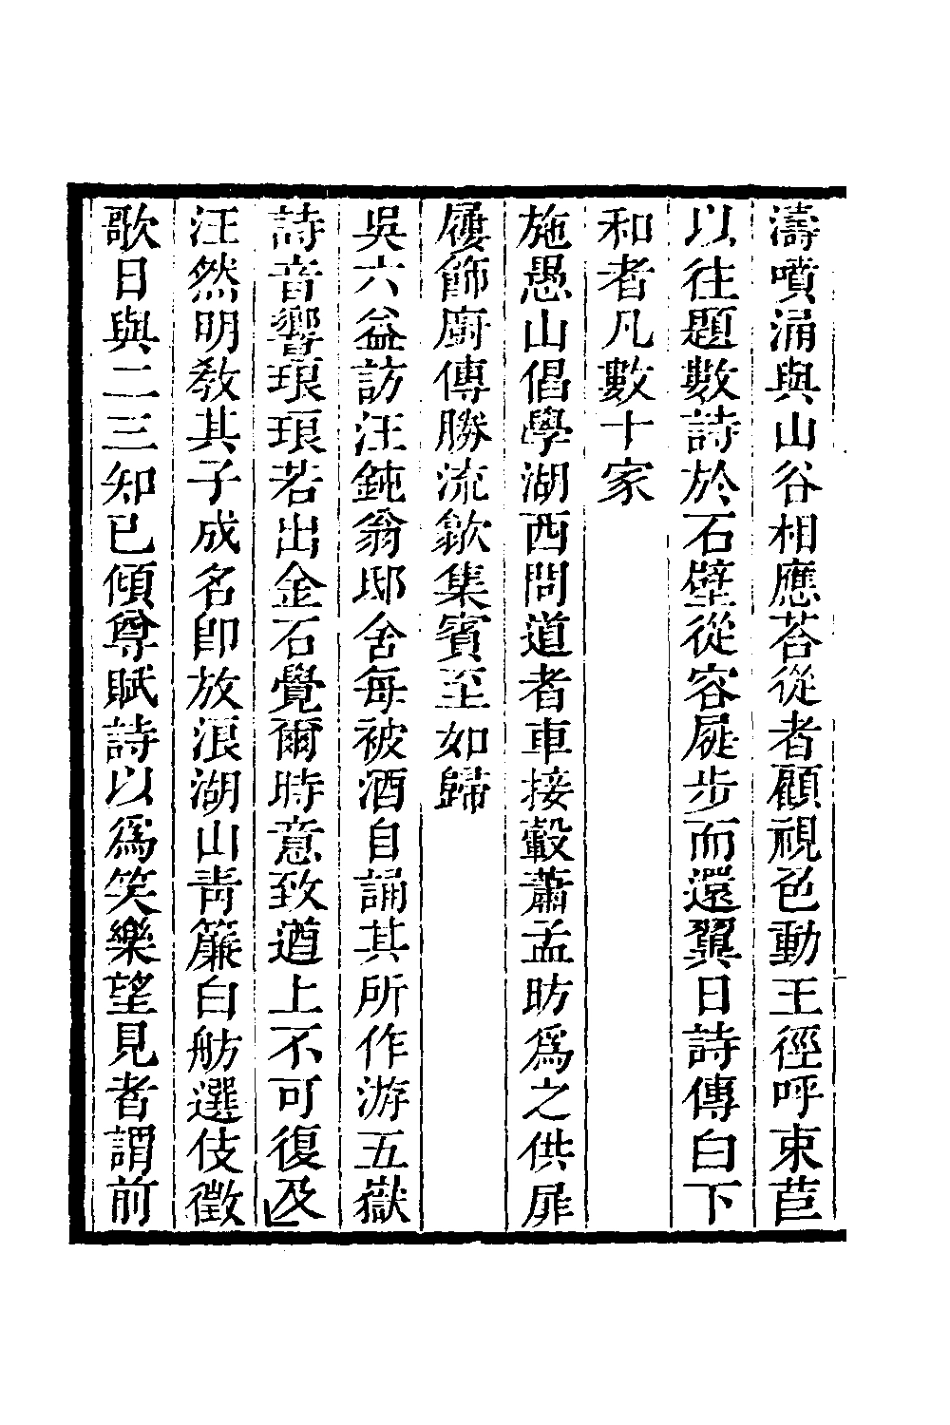 濤噴涌與山谷相應荅從者顧視色動王徑呼束苣
以往題數詩於石壁從容屣步而還翼日詩傳白下
和者凡數十家
施愚山倡學湖西問道者車接轂蕭孟昉爲之供屝
屨飾廚傳勝流歙集賓至如歸
吳六益訪汪鈍翁邸舍每被酒自誦其所作游五嶽
詩音響琅琅若出金石覺爾時意致遒上不可復及
汪然明敎其子成名卽放浪湖山靑簾白舫選伎徵
歌日與二三知已傾尊賦詩以爲笑樂望見者謂前